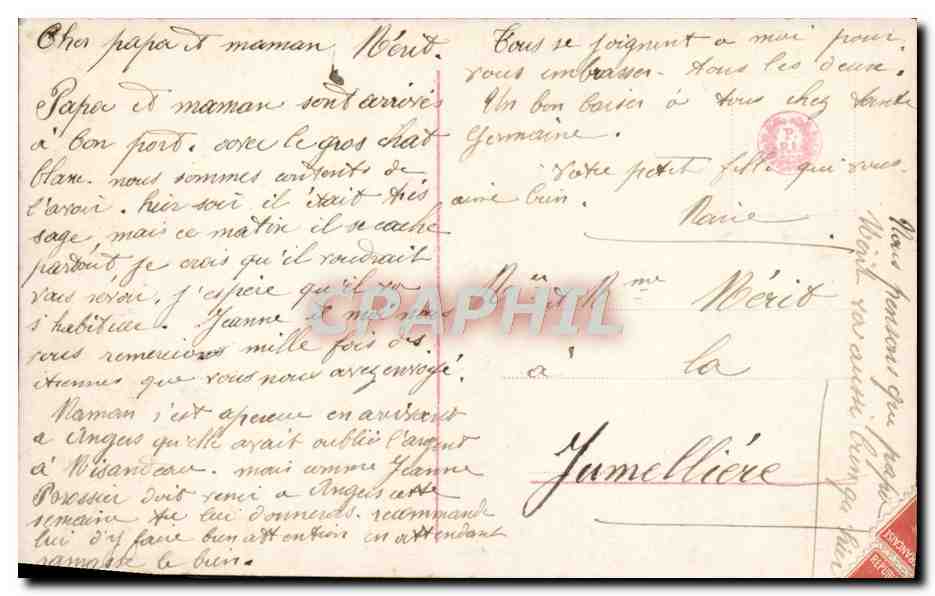 Cher papa et maman Mérit.
Papa et maman sont arrivés
à bon port. avec le gros chat
blanc. nous sommes contents de
l'avoir. hier soir il était très
sage, mais ce matin il se cache
partout je crois qu'il voudrait
vous revoir. j'espère qu'il va
s'habituer. Jeanne et moi nous
vous remercions mille fois des
étrennes que vous nous avez envoyé.
Maman s'est aperçue en arrivant
à Angers qu'elle avait oublié l'argent
à mais comme Jeanne
doit venir à Angers cette
semaine tu lui donneras. recommande
lui d'y faire bien attention en attendant
ramasse le bien.
Tous se joignent a moi pour
vous embrasser tous les deux.
Un bon baiser à tous chez tante
Germaine.
Votre petit fille qui vous
aime bien.
Marie
Mr et Mme Mérit
à la
Jumellière
Nous pensons que papa
Mérit va aussi bien qu'hier
CPAPHIL